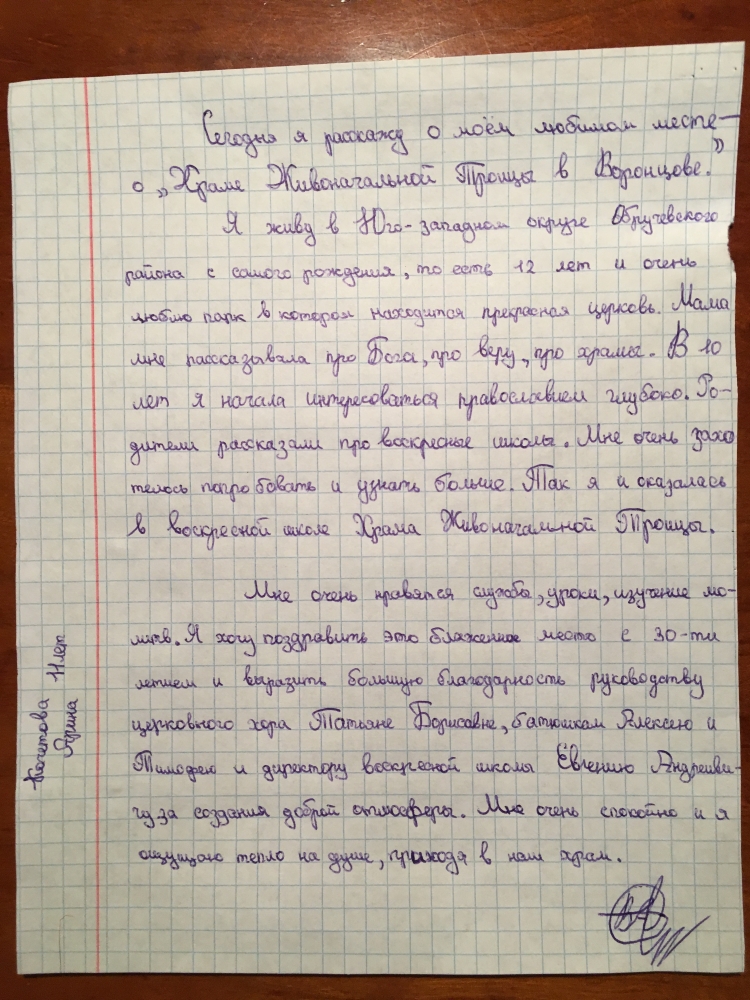 Сегодня я расскажу о моём любимом месте-
о „Храме Живоначальной Троицы в Воронцове.”
Я живу в Юго-западном округе Обручевского
района с самого рождения, то есть 12 лет и очень
люблю парк в котором находится прекрасная церковь. Мама
мне рассказывала про Бога, про веру, про храмы. В 10
лет я начала интересоваться православием глубоко. Ро-
дители рассказали про воскресные школы. Мне очень захо
телось попробовать и узнать больше. Так я и оказалась
в воскресной школе Храма Живоначальной Троицы.
Мне очень нравятся служба, уроки, изучение мо-
литв. Я хочу поздравить это блаженное место с 30-ти
летием и выразить большую благодарность руководству
церковного хора Татьяне Борисовне, батюшкам Алексею и
Тимофею и директору воскресной школы Евгению Андреиви-
чу за создания доброй атмосферы. Мне очень спокойно и я
ощущаю тепло на душе, приходя в наш храм.
Арина 11лет